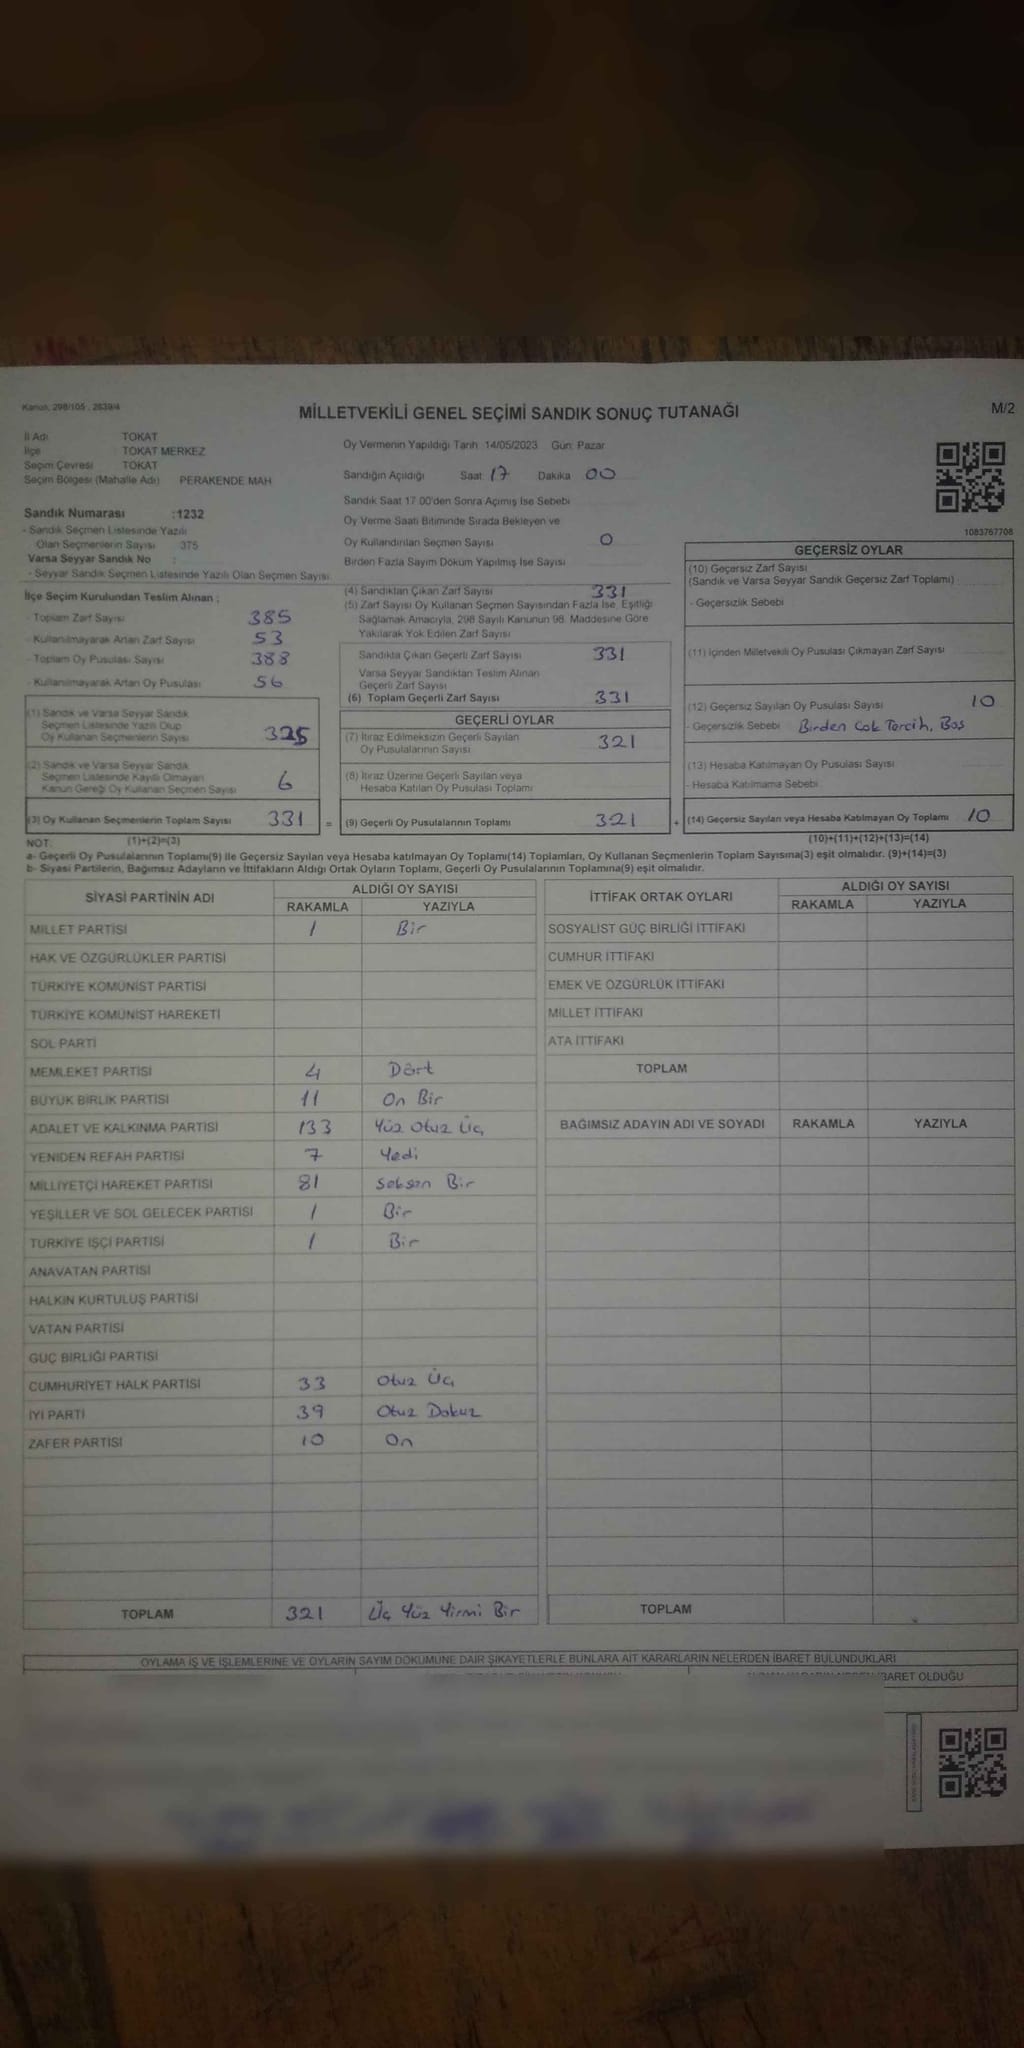 Kanun, 298/105 , 2839/4
MİLLETVEKİLİ GENEL SEÇİMİ SANDIK SONUÇ TUTANAĞI
M/2
İl Adı TOKAT
İlçe : TOKAT MERKEZ
Seçim Çevresi TOKAT
Seçim Bölgesi (Mahalle Adı) PERAKENDE MAH
Sandık Numarası :1232
- Sandık Seçmen Listesinde Yazılı
Olan Seçmenlerin Sayısı : 375
Varsa Seyyar Sandık No :
- Seyyar Sandık Seçmen Listesinde Yazılı Olan Seçmen Sayısı
Oy Vermenin Yapıldığı Tarih 14/05/2023 Gün: Pazar
Sandığın Açıldığı Saat 17 Dakika 00
Sandık Saat 17.00'den Sonra Açımış İse Sebebi
Oy Verme Saati Bitiminde Sırada Bekleyen ve
Oy Kullandırılan Seçmen Sayısı 0
Birden Fazla Sayım Döküm Yapılmış İse Sayısı
1083767708
İlçe Seçim Kurulundan Teslim Alınan ;
- Toplam Zarf Sayısı 385
- Kullanılmayarak Artan Zarf Sayısı 53
- Toplam Oy Pusulası Sayısı 388
- Kullanılmayarak Artan Oy Pusulası 56
(1) Sandık ve Varsa Seyyar Sandık
Seçmen Listesinde Yazılı Olup
Oy Kullanan Seçmenlerin Sayısı 325
(2) Sandık ve Varsa Seyyar Sandık
Seçmen Listesinde Kayıtlı Olmayan
Kanun Gereği Oy Kullanan Seçmen Sayısı 6
(3) Oy Kullanan Seçmenlerin Toplam Sayısı 331 =
(4) Sandıktan Çıkan Zarf Sayısı 331
(5) Zarf Sayısı Oy Kullanan Seçmen Sayısından Fazla İse, Eşitliği
Sağlamak Amacıyla, 298 Sayılı Kanunun 98. Maddesine Göre
Yakılarak Yok Edilen Zarf Sayısı
Sandıkta Çıkan Geçerli Zarf Sayısı 331
Varsa Seyyar Sandıktan Teslim Alınan
Geçerli Zarf Sayısı
(6) Toplam Geçerli Zarf Sayısı 331
GEÇERLİ OYLAR
(7) İtiraz Edilmeksizin Geçerli Sayılan
Oy Pusulalarının Sayısı 321
(8) İtiraz Üzerine Geçerli Sayılan veya
Hesaba Katılan Oy Pusulası Toplamı
(9) Geçerli Oy Pusulalarının Toplamı 321 +
GEÇERSİZ OYLAR
(10) Geçersiz Zarf Sayısı
(Sandık ve Varsa Seyyar Sandık Geçersiz Zarf Toplamı)
- Geçersizlik Sebebi
(11) İçinden Milletvekili Oy Pusulası Çıkmayan Zarf Sayısı
(12) Geçersiz Sayılan Oy Pusulası Sayısı 10
- Geçersizlik Sebebi Birden Çok Tercih, Boş
(13) Hesaba Katılmayan Oy Pusulası Sayısı
- Hesaba Katılmama Sebebi
(14) Geçersiz Sayılan veya Hesaba Katılmayan Oy Toplamı 10
NOT: (1)+(2)=(3) (10)+(11)+(12)+(13)=(14)
a- Geçerli Oy Pusulalarının Toplamı(9) ile Geçersiz Sayılan veya Hesaba katılmayan Oy Toplamı(14) Toplamları, Oy Kullanan Seçmenlerin Toplam Sayısına(3) eşit olmalıdır. (9)+(14)=(3)
b- Siyasi Partilerin, Bağımsız Adayların ve İttifakların Aldığı Ortak Oyların Toplamı, Geçerli Oy Pusulalarının Toplamına(9) eşit olmalıdır.
SİYASİ PARTİNİN ADI ALDIĞI OY SAYISI
RAKAMLA YAZIYLA
MİLLET PARTİSİ 1 Bir
HAK VE ÖZGÜRLÜKLER PARTİSİ
TÜRKİYE KOMÜNİST PARTİSİ
TÜRKİYE KOMÜNİST HAREKETİ
SOL PARTİ
MEMLEKET PARTİSİ 4 Dört
BÜYÜK BİRLİK PARTİSİ 11 On Bir
ADALET VE KALKINMA PARTİSİ 133 Yüz Otuz Üç
YENİDEN REFAH PARTİSİ 7 Yedi
MİLLİYETÇİ HAREKET PARTİSİ 81 Seksen Bir
YEŞİLLER VE SOL GELECEK PARTİSİ 1 Bir
TÜRKİYE İŞÇİ PARTİSİ 1 Bir
ANAVATAN PARTİSİ
HALKIN KURTULUŞ PARTİSİ
VATAN PARTİSİ
GÜÇ BİRLİĞİ PARTİSİ
CUMHURİYET HALK PARTİSİ 33 Otuz Üç
İYİ PARTİ 39 Otuz Dokuz
ZAFER PARTİSİ 10 On
TOPLAM 321 Üç Yüz Yirmi Bir
İTTİFAK ORTAK OYLARI ALDIĞI OY SAYISI
RAKAMLA YAZIYLA
SOSYALİST GÜÇ BİRLİĞİ İTTİFAKI
CUMHUR İTTİFAKI
EMEK VE ÖZGÜRLÜK İTTİFAKI
MİLLET İTTİFAKI
ATA İTTİFAKI
TOPLAM
BAĞIMSIZ ADAYIN ADI VE SOYADI RAKAMLA YAZIYLA
TOPLAM
OYLAMA İŞ VE İŞLEMLERİNE VE OYLARIN SAYIM DÖKÜMÜNE DAİR ŞİKAYETLERLE BUNLARA AİT KARARLARIN NELERDEN İBARET BULUNDUKLARI
OLDUĞU